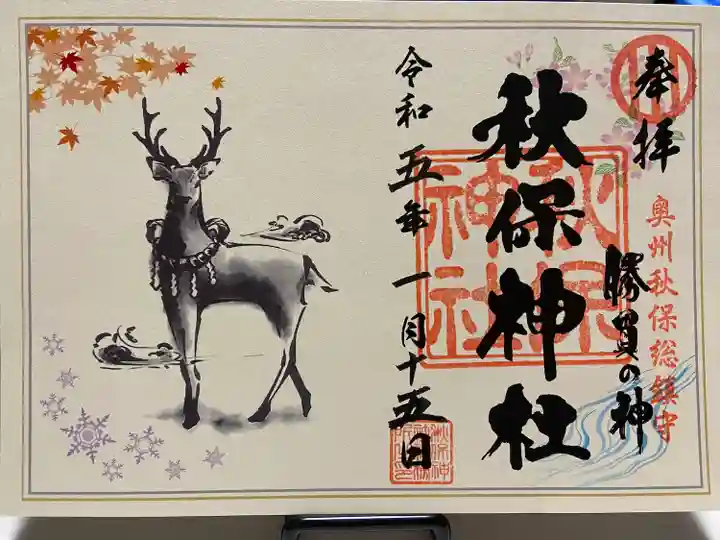 奉拝
奥州秋保総鎮守
勝負の神
秋保神社
秋保神社
令和五年一月十五日